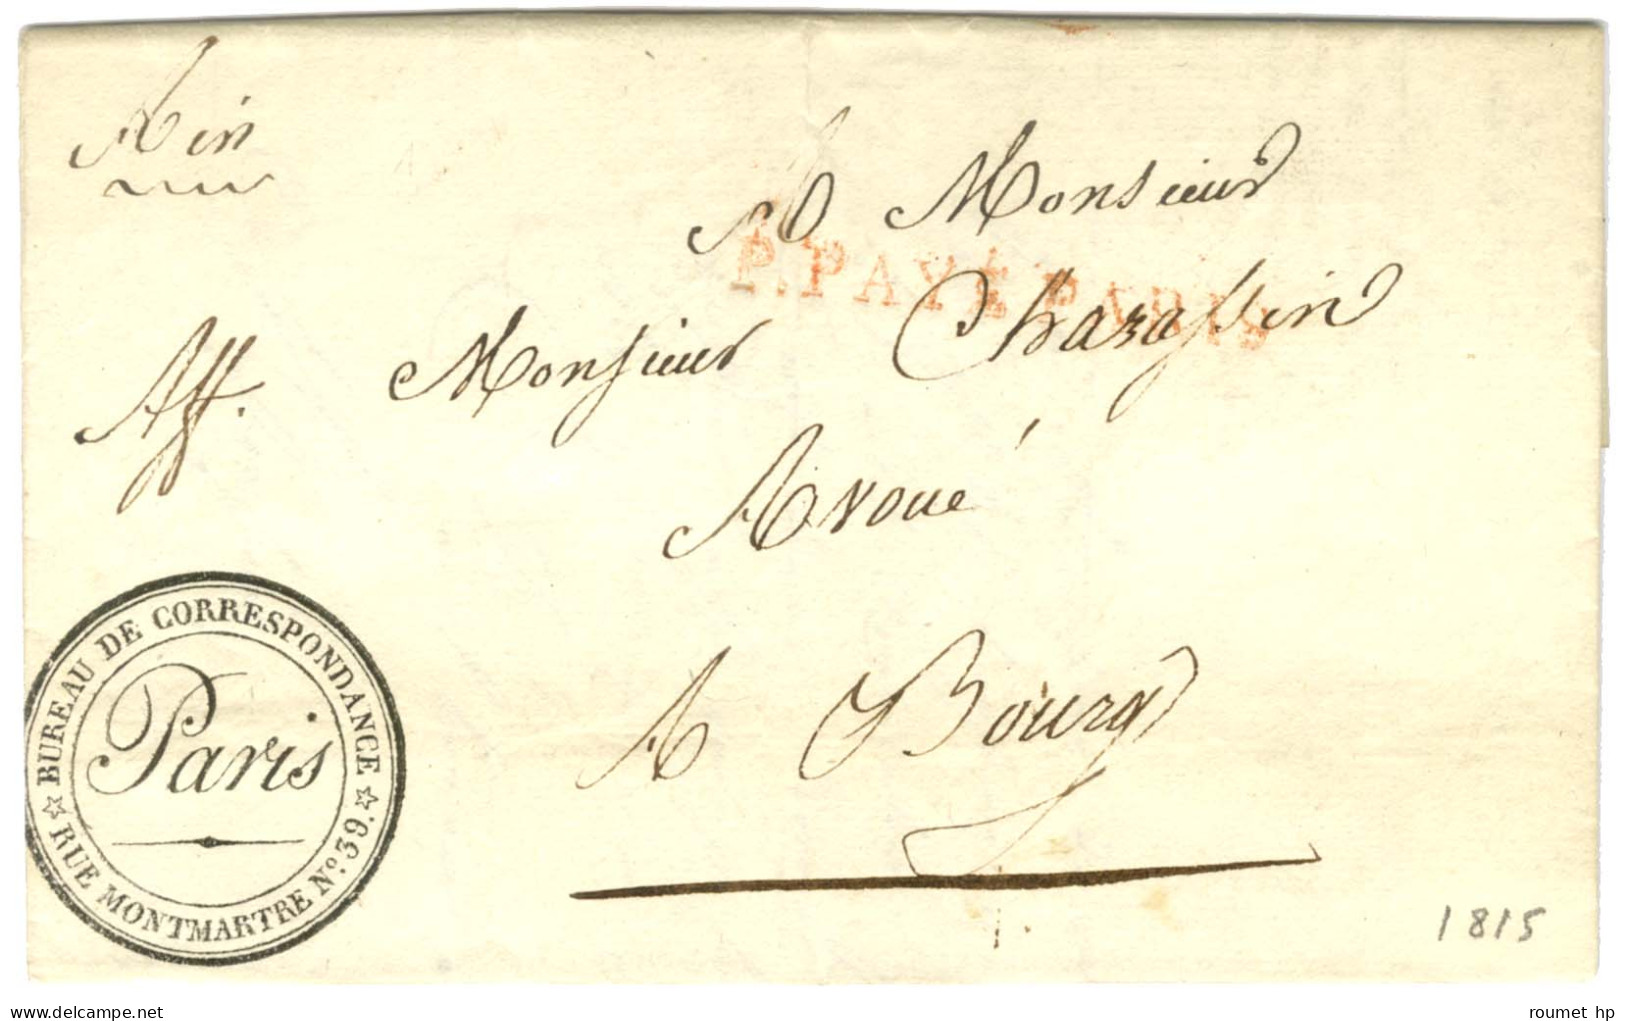 Ain
A Monsieur
P. PAYÉ PARIS
Monsieur Charassin
Aff.
Avoué
A Bourg
BUREAU DE CORRESPONDANCE
Paris
RUE MONTMARTRE N° 39.
1815
www.delcampe.net
roumet hp